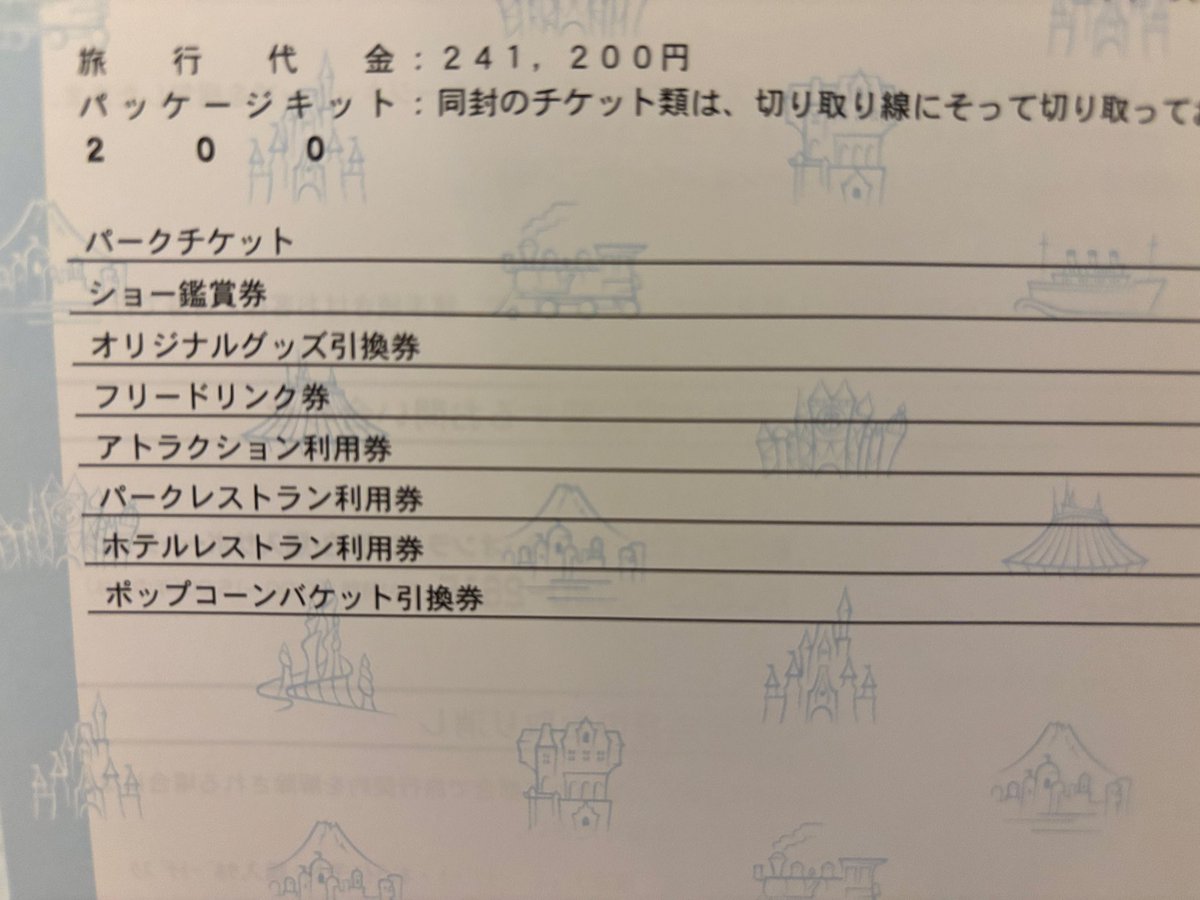 旅行代金：241，200円
パッケージキット：同封のチケット類は、切り取り線にそって切り取って
200
パークチケット
ショー鑑賞券
オリジナルグッズ引換券
フリードリンク券
アトラクション利用券
パークレストラン利用券
ホテルレストラン利用券
ポップコーンバケット引換券